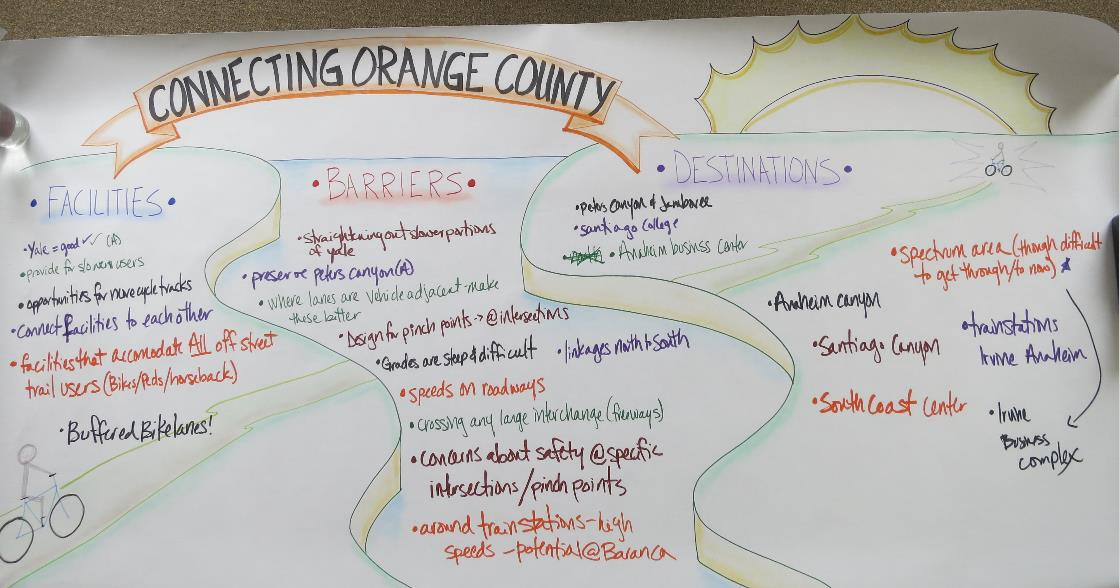 CONNECTING ORANGE COUNTY
• FACILITIES •
• Yale = good ✓✓ (A)
• provide for slower users
• opportunities for more cycle tracks
• Connect facilities to each other
• facilities that accomodate All off street
trail users (Bikes/Peds/horseback)
• Buffered Bike lanes!
• BARRIERS •
• straightening out slower portions
of yale
• preserve peters canyon (A)
• where lanes are vehicle adjacent - make
these better
• Design for pinch points → @ intersections
• Grades are steep & difficult
• linkages north to south
• speeds on roadways
• crossing any large interchange (freeways)
• concerns about safety @ specific
intersections/pinch points
• around train stations - high
speeds - potential @ Baranca
• DESTINATIONS •
• peters canyon & Jamboree
• santiago college
• Anaheim business center
• spectrum area (though difficult
to get through/to now)
• Anaheim canyon
• Santiago Canyon
• train stations
Irvine Anaheim
• South Coast center
• Irvine
Business
complex